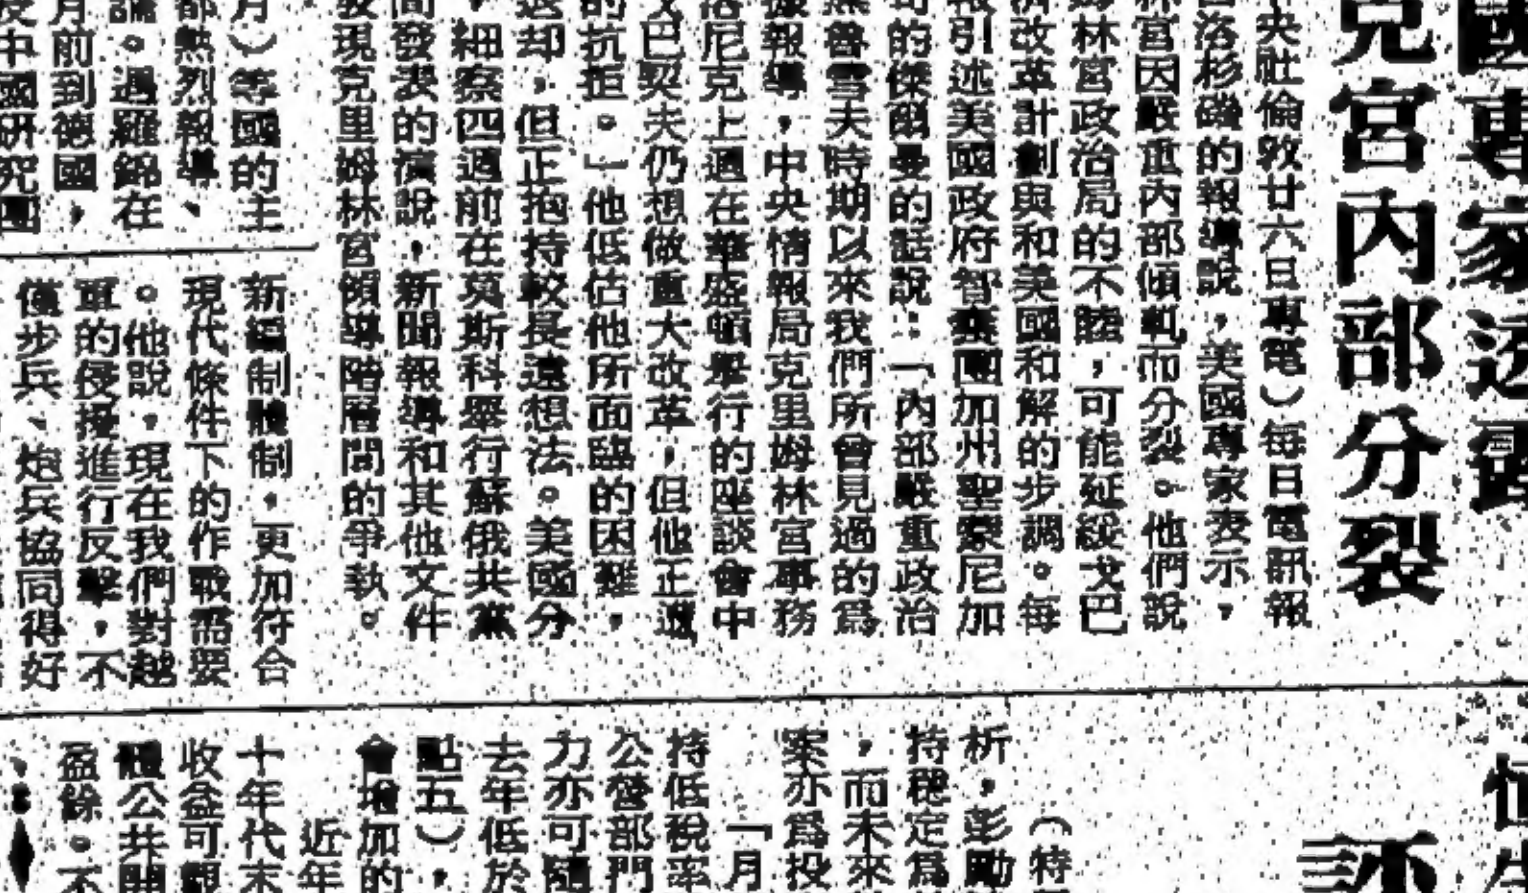 國專家透露
克宮內部分裂
央社倫敦廿六日專電）每日電訊報
洛杉磯的報導說，美國專家表示，
林宮因嚴重內部傾軋而分裂。他們說
姆林宮政治局的不睦，可能延緩戈巴
濟改革計劃與和美國和解的步調。每
報引述美國政府智囊團加州聖蒙尼加
司的傑爾曼的話說：「內部嚴重政治
魯雪夫時期以來我們所曾見過的爲
據報導，中央情報局克里姆林宮事務
洛尼克上週在華盛頓舉行的座談會中
戈巴契夫仍想做重大改革，但他正遭
的抗拒。」他低估他所面臨的困難，
退却，但正抱持較長遠想法。美國分
細察四週前在莫斯科舉行蘇俄共黨
間發表的演說，新聞報導和其他文件
發現克里姆林宮領導階層間的爭執。
月）等國的主
都熱烈報導、
論。過羅錦在
月前到德國，
中國研究團
新編制體制，更加符合
現代條件下的作戰需要
。他說，現在我們對越
軍的侵擾進行反擊，不
僅步兵、炮兵協同得好
（特
析，彭勵
持穩定爲
，而未來
案亦爲投
「月
持低稅率
公營部門
力亦可隨
去年低於
點五），
會增加的
近年
十年代末
收益可觀
體公共開
盈餘。不
恒生
評